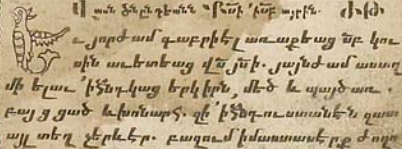 և յորժամ գաբրիէլ առաքեաց ած կու
սին աւետեաց վն յսի. յայնժամ աստղ
մի ելաւ իհնդկաց երկիրն, մեծ և պայծառ.
բայց ցած և խոնարհ. զի իհնդուստանէն դատ
այլ տեղ չերևէր. բազում իմաստասէրք ժողո